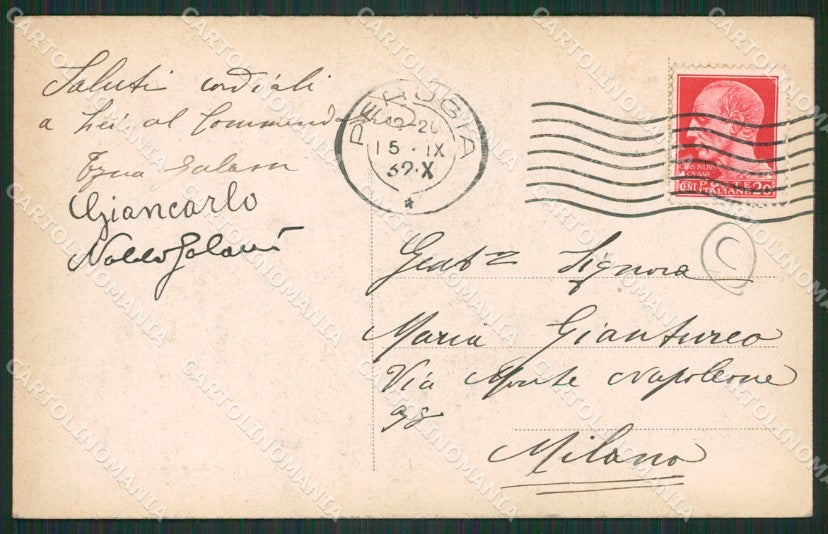 Saluti cordiali
a Lei al Command
Galassi
Giancarlo
Galassi
PERUGIA
15 · IX
32·X
*
IVLIVS
CAESAR
CENT. POSTE 20
ITALIANE
C
Gent Signora
Maria Gianturco
Via Monte Napoleone
Milano
CARTOLINOMANIA